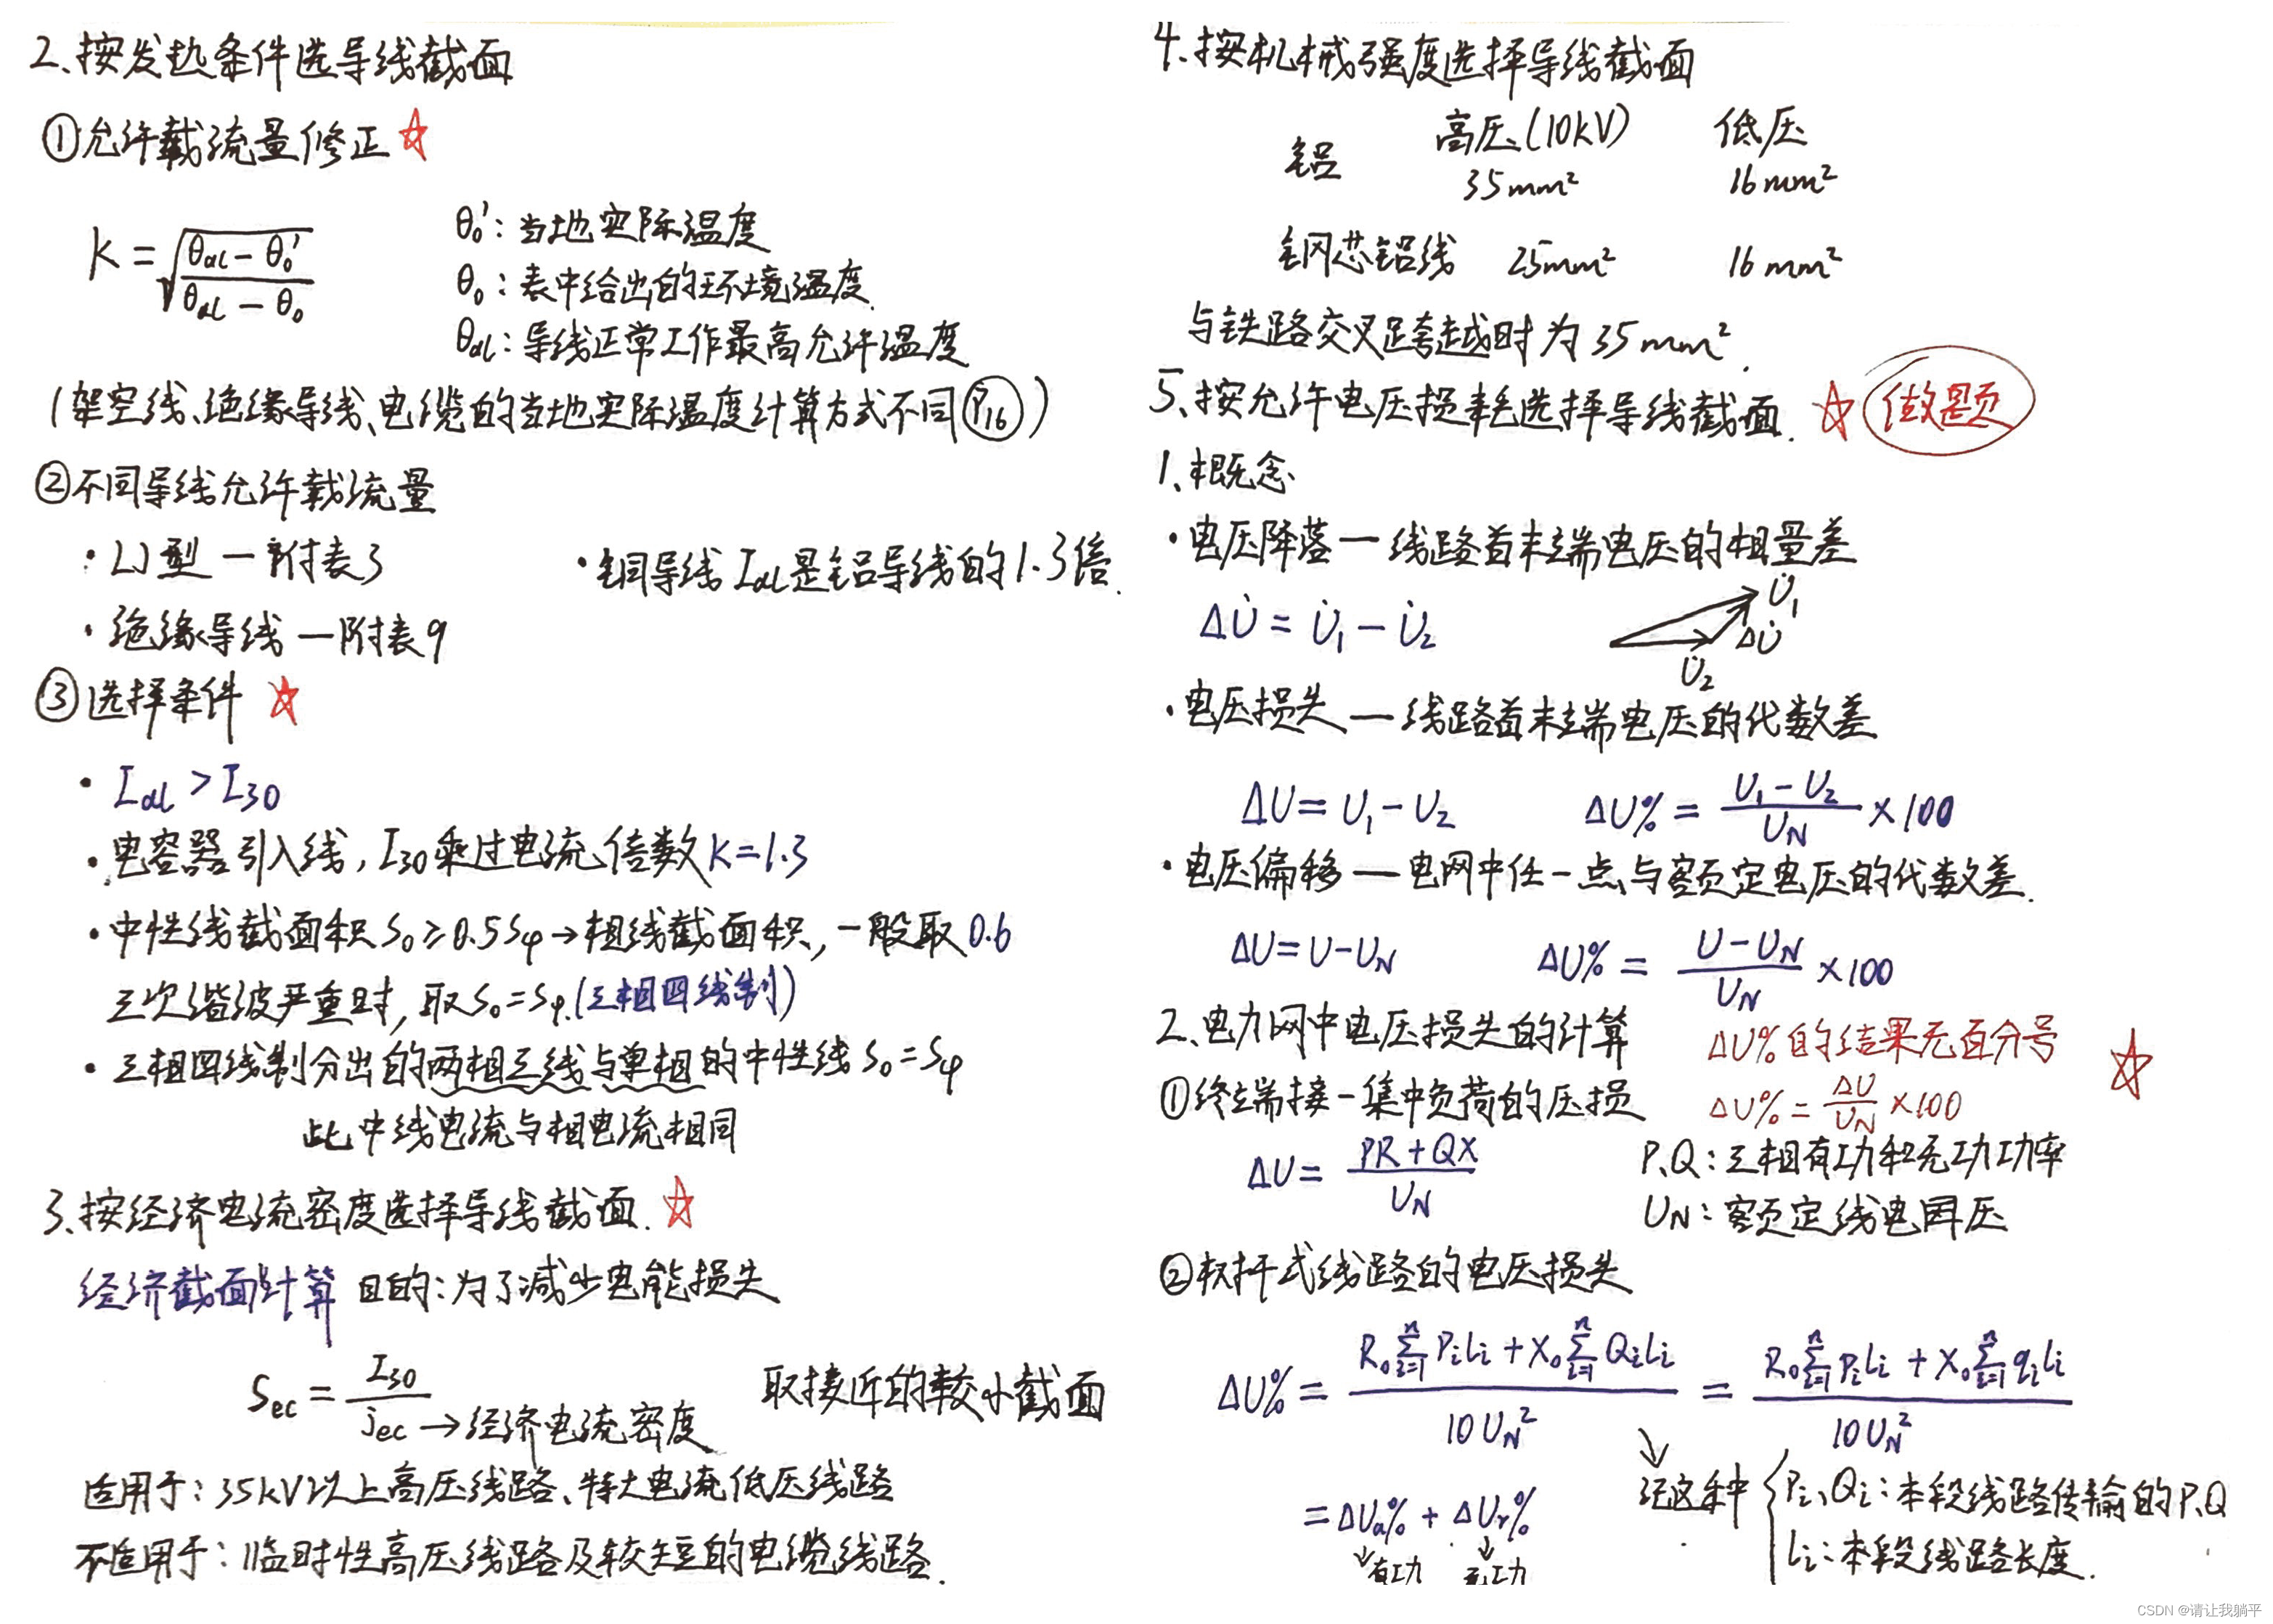 2、按发热条件选导线截面
①允许载流量修正☆
K = √((θal - θ0')/(θal - θ0))
θ0': 当地实际温度
θ0: 表中给出的环境温度.
θal: 导线正常工作最高允许温度
(架空线、绝缘导线、电缆的当地实际温度计算方式不同 P16)
②不同导线允许载流量
· LJ型 — 附表3
· 铜导线 Ial是铝导线的1.3倍.
· 绝缘导线 — 附表9
③选择条件 ☆
· Ial > I30
· 电容器引入线, I30乘过电流倍数 K=1.3
· 中性线截面积 S0 ≥ 0.5Sφ → 相线截面积, 一般取0.6
三次谐波严重时, 取S0=Sφ.(三相四线制)
· 三相四线制分出的两相三线与单相的中性线 S0=Sφ
此中线电流与相电流相同
3、按经济电流密度选择导线截面. ☆
经济截面计算 目的: 为了减少电能损失
Sec = I30/jec → 经济电流密度
取接近的较小截面
适用于: 35kV以上高压线路、特大电流低压线路
不适用于: 临时性高压线路及较短的电缆线路.
4、按机械强度选择导线截面
高压(10kV) 低压
铝 35mm² 16mm²
钢芯铝线 25mm² 16mm²
与铁路交叉跨越时为35mm².
5、按允许电压损耗选择导线截面. ☆ 做题
1、概念
· 电压降落 — 线路首末端电压的相量差
ΔU̇ = U̇1 - U̇2
U̇1
ΔU̇
U̇2
· 电压损失 — 线路首末端电压的代数差
ΔU = U1 - U2 ΔU% = (U1 - U2)/UN × 100
· 电压偏移 — 电网中任一点与额定电压的代数差.
ΔU = U - UN ΔU% = (U - UN)/UN × 100
2、电力网中电压损失的计算
ΔU%的结果无百分号 ☆
①终端接一集中负荷的压损
ΔU% = ΔU/UN × 100
ΔU = (PR + QX)/UN
P、Q: 三相有功和无功功率
UN: 额定线电压
②树干式线路的电压损失
ΔU% = (R0 Σ(i=1→n) PiLi + X0 Σ(i=1→n) QiLi)/(10UN²) = (R0 Σ(i=1→n) piLi + X0 Σ(i=1→n) qiLi)/(10UN²)
= ΔUa% + ΔUr%
↓有功 ↓无功
↘ 记这种 { Pi、Qi: 本段线路传输的P.Q
Li: 本段线路长度.
CSDN @请让我躺平